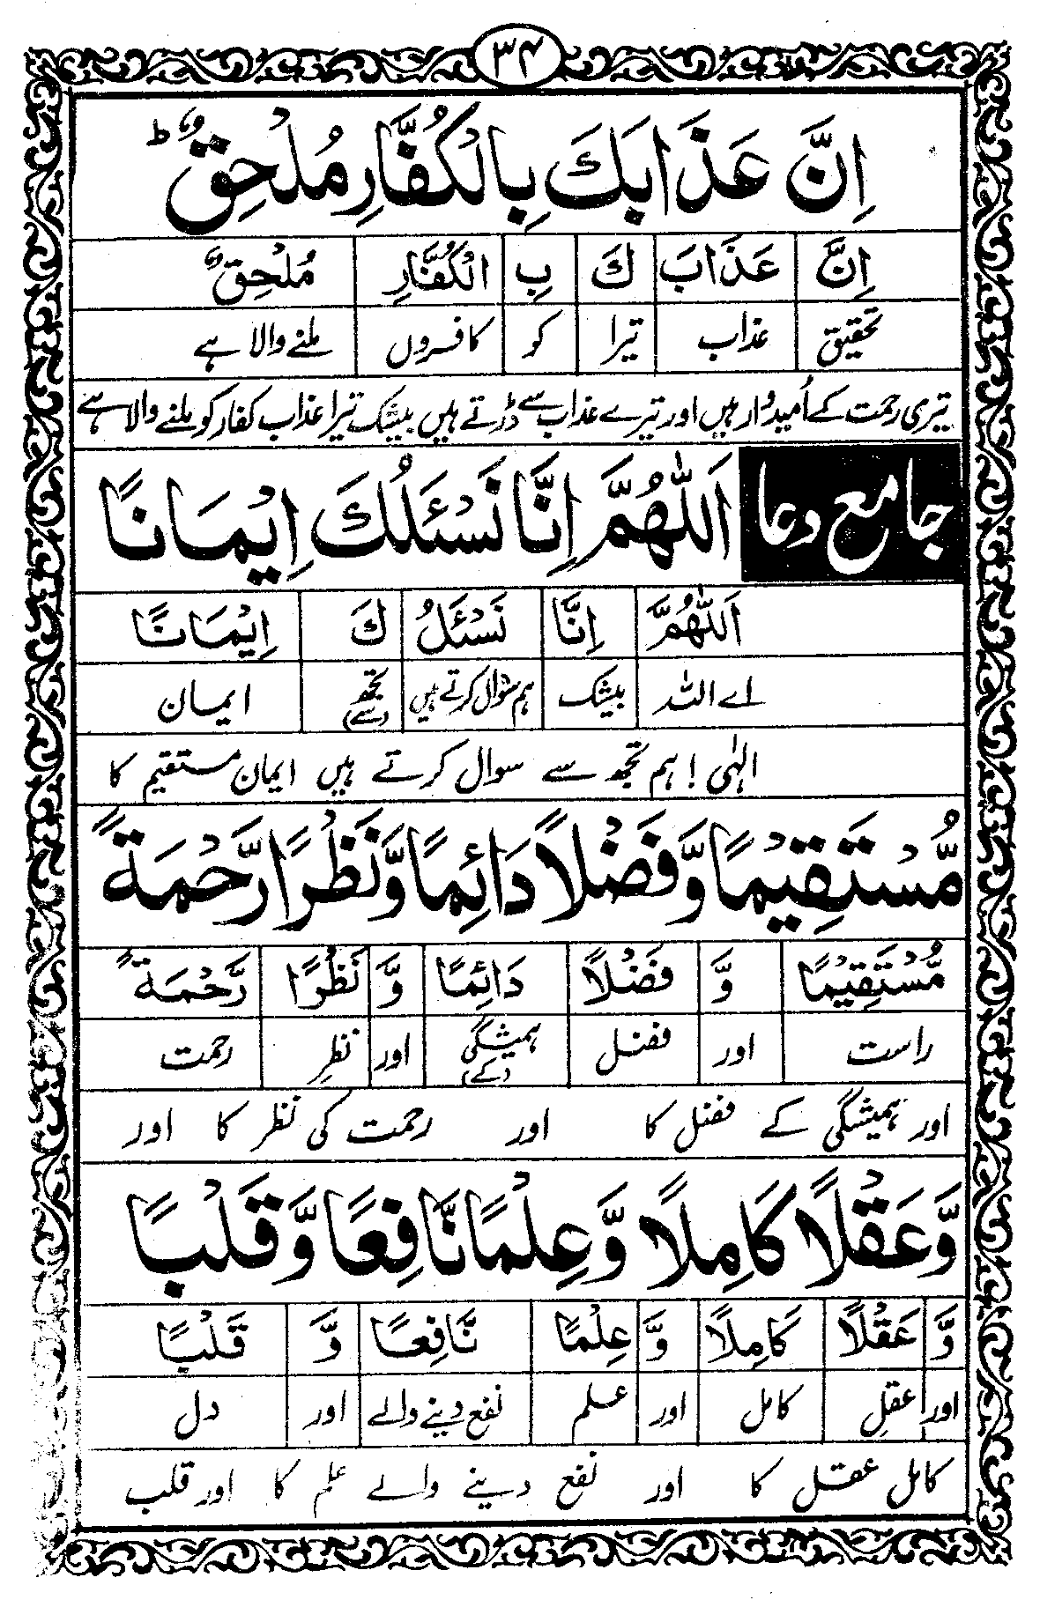 ۳۴
اِنَّ عَذَابَكَ بِالْكُفَّارِ مُلْحِقٌ ؕ
اِنَّ عَذَابَ كَ بِ الْكُفَّارِ مُلْحِقٌ
تحقیق عذاب تیرا کو کافروں ملنے والا ہے
تیری رحمت کے اُمیدوار ہیں اور تیرے عذاب سے ڈرتے ہیں بیشک تیرا عذاب کفار کو ملنے والا ہے
جامع دعا اَللّٰهُمَّ اِنَّا نَسْئَلُكَ اِيْمَانًا
اَللّٰهُمَّ اِنَّا نَسْئَلُ كَ اِيْمَانًا
اے اللہ بیشک ہم سوال کرتے ہیں تجھ (سے) ایمان
الٰہی ! ہم تجھ سے سوال کرتے ہیں ایمان مستقیم کا
مُّسْتَقِيْمًا وَّفَضْلًا دَائِمًا وَّنَظْرًا رَّحْمَةً
مُّسْتَقِيْمًا وَّ فَضْلًا دَائِمًا وَّ نَظْرًا رَّحْمَةً
راست اور فضل ہمیشگی (کے) اور نظر رحمت
اور ہمیشگی کے فضل کا اور رحمت کی نظر کا اور
وَّعَقْلًا كَامِلًا وَّعِلْمًا نَّافِعًا وَّقَلْبًا
وَّ عَقْلًا كَامِلًا وَّ عِلْمًا نَّافِعًا وَّ قَلْبًا
اور عقلِ کامل اور علم نفع دینے والے اور دل
کامل عقل کا اور نفع دینے والے علم کا اور قلب